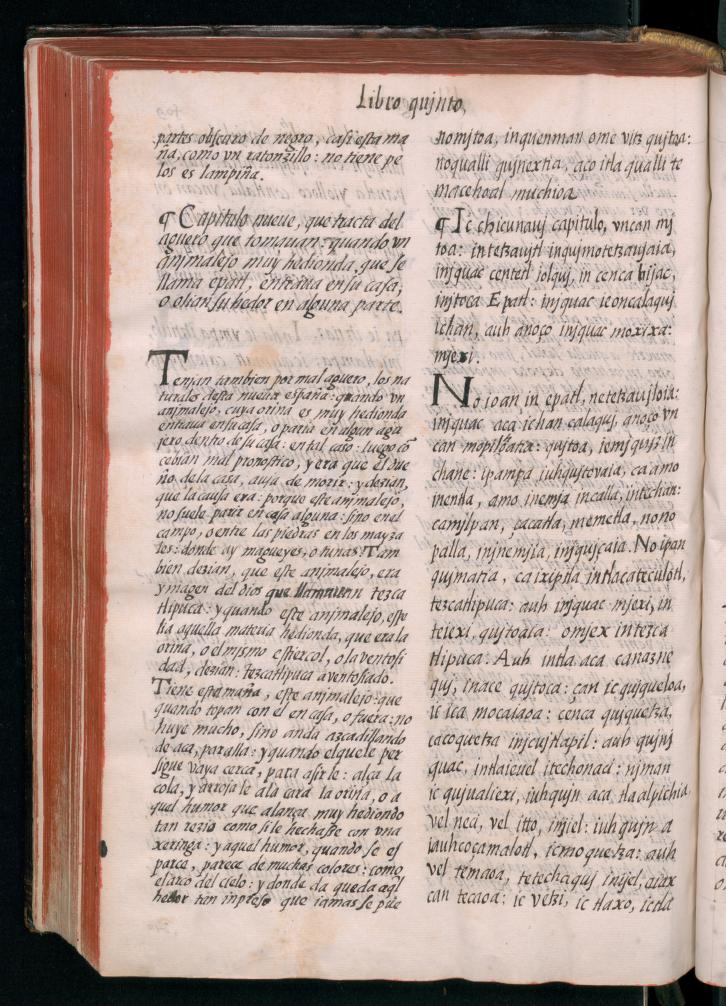 Libro qujnto,
partes obscuro de negro, casi esta ma
ña, como vn ratonzillo: no tiene pe
los es lampiña.
¶ Capitulo nueue, que tracta del
aguero que tomauan: quando vn
animalejo muy hedionda, que se
llama epatl, entraua en su casa,
o olian su hedor en alguna parte.
Tenjan tambien por mal aguero, los na
turales desta nueua españa: quando vn
animalejo, cuya orina es muy hedionda
entraua en su casa, o paria en algun agu
jero dentro de su casa: en tal caso: luego cō
cebian mal pronostico, y era que el due
ño de la casa, auja de morir: y dezian,
que la causa era: porque este animalejo,
no suele parir en casa alguna: sino en el
campo, o entre las piedras en los mayza
les: donde ay magueyes, o tunas. Tam
bien dezian, que este animalejo, era
ymagen del dios que llamauan tezca
tlipuca: y quando este animalejo, espe
lia aquella materia hedionda, que era la
orina, o el mismo estiercol, o la ventosi
dad, dezian: tezcatlipuca a ventosiado.
Tiene esta maña, este animalejo: que
quando topan con el en casa, o fuera: no
huye mucho, sino anda azcadillando
de aca, para lla: y quando el que le per
sigue vaya cerca, para asirle: alça la
cola, y arroja le a la cara la orina, o a
quel humor que alança muy hediondo
tan rezio como si le hechase con vna
xeringa: y aquel humor, quando se es
parce, parece de muchas colores: como
el arco del cielo: y donde da queda aql
hedor tan impreso que iamas se pue
nomjtoa, in quenman ome vitz qujtoa:
noqualli qujnextia, aço itla qualli te
macehoal muchioa
¶ Ic chicunauj capitulo, vncan mj
toa: in tetzaujtl inqujmotetzaujaia,
injquac centetl iolquj, in cenca hijac,
injtoca Epatl: injquac ieoncalaquj
ichan, auh anoço injquac moxixa:
mjexi.
No ioan in epatl, netetzaujloia:
injquac aca ichan calaquj, anoço vn
can mopilhoatia: qujtoa, ie mjqujz in
chane: ipampa iuhqujtovaia, ca amo
inentla, amo inemja in calla, intechan:
ca mjlpan, çacatla, memetla, nono
palla, injnemjia, injqujçaia. No ipan
qujmatia, ca ixiptla in tlacateculotl,
tezcatlipuca: auh injquac mjexi, in
teiexi, qujtoaia: omjex in tezca
tlipuca. Auh intla aca canazne
quj, inace qujtoca: çan ic qujqueloa,
ic ica mocaiaoa: cenca qujquetza,
cacoquetza injcujtlapil: auh qujnj
quac, in tlaievel itechonaci: njman
ic qujualiexi, iuhqujn aca tlaalpichia,
vel neci, vel itto, injiel: iuhqujn a
iauhcoçamalotl, ic moquetza: auh
vel temaoa, tetech aquj injiel, aiax
can tecaoa: ic vetzi, ic tlaxo, ictla